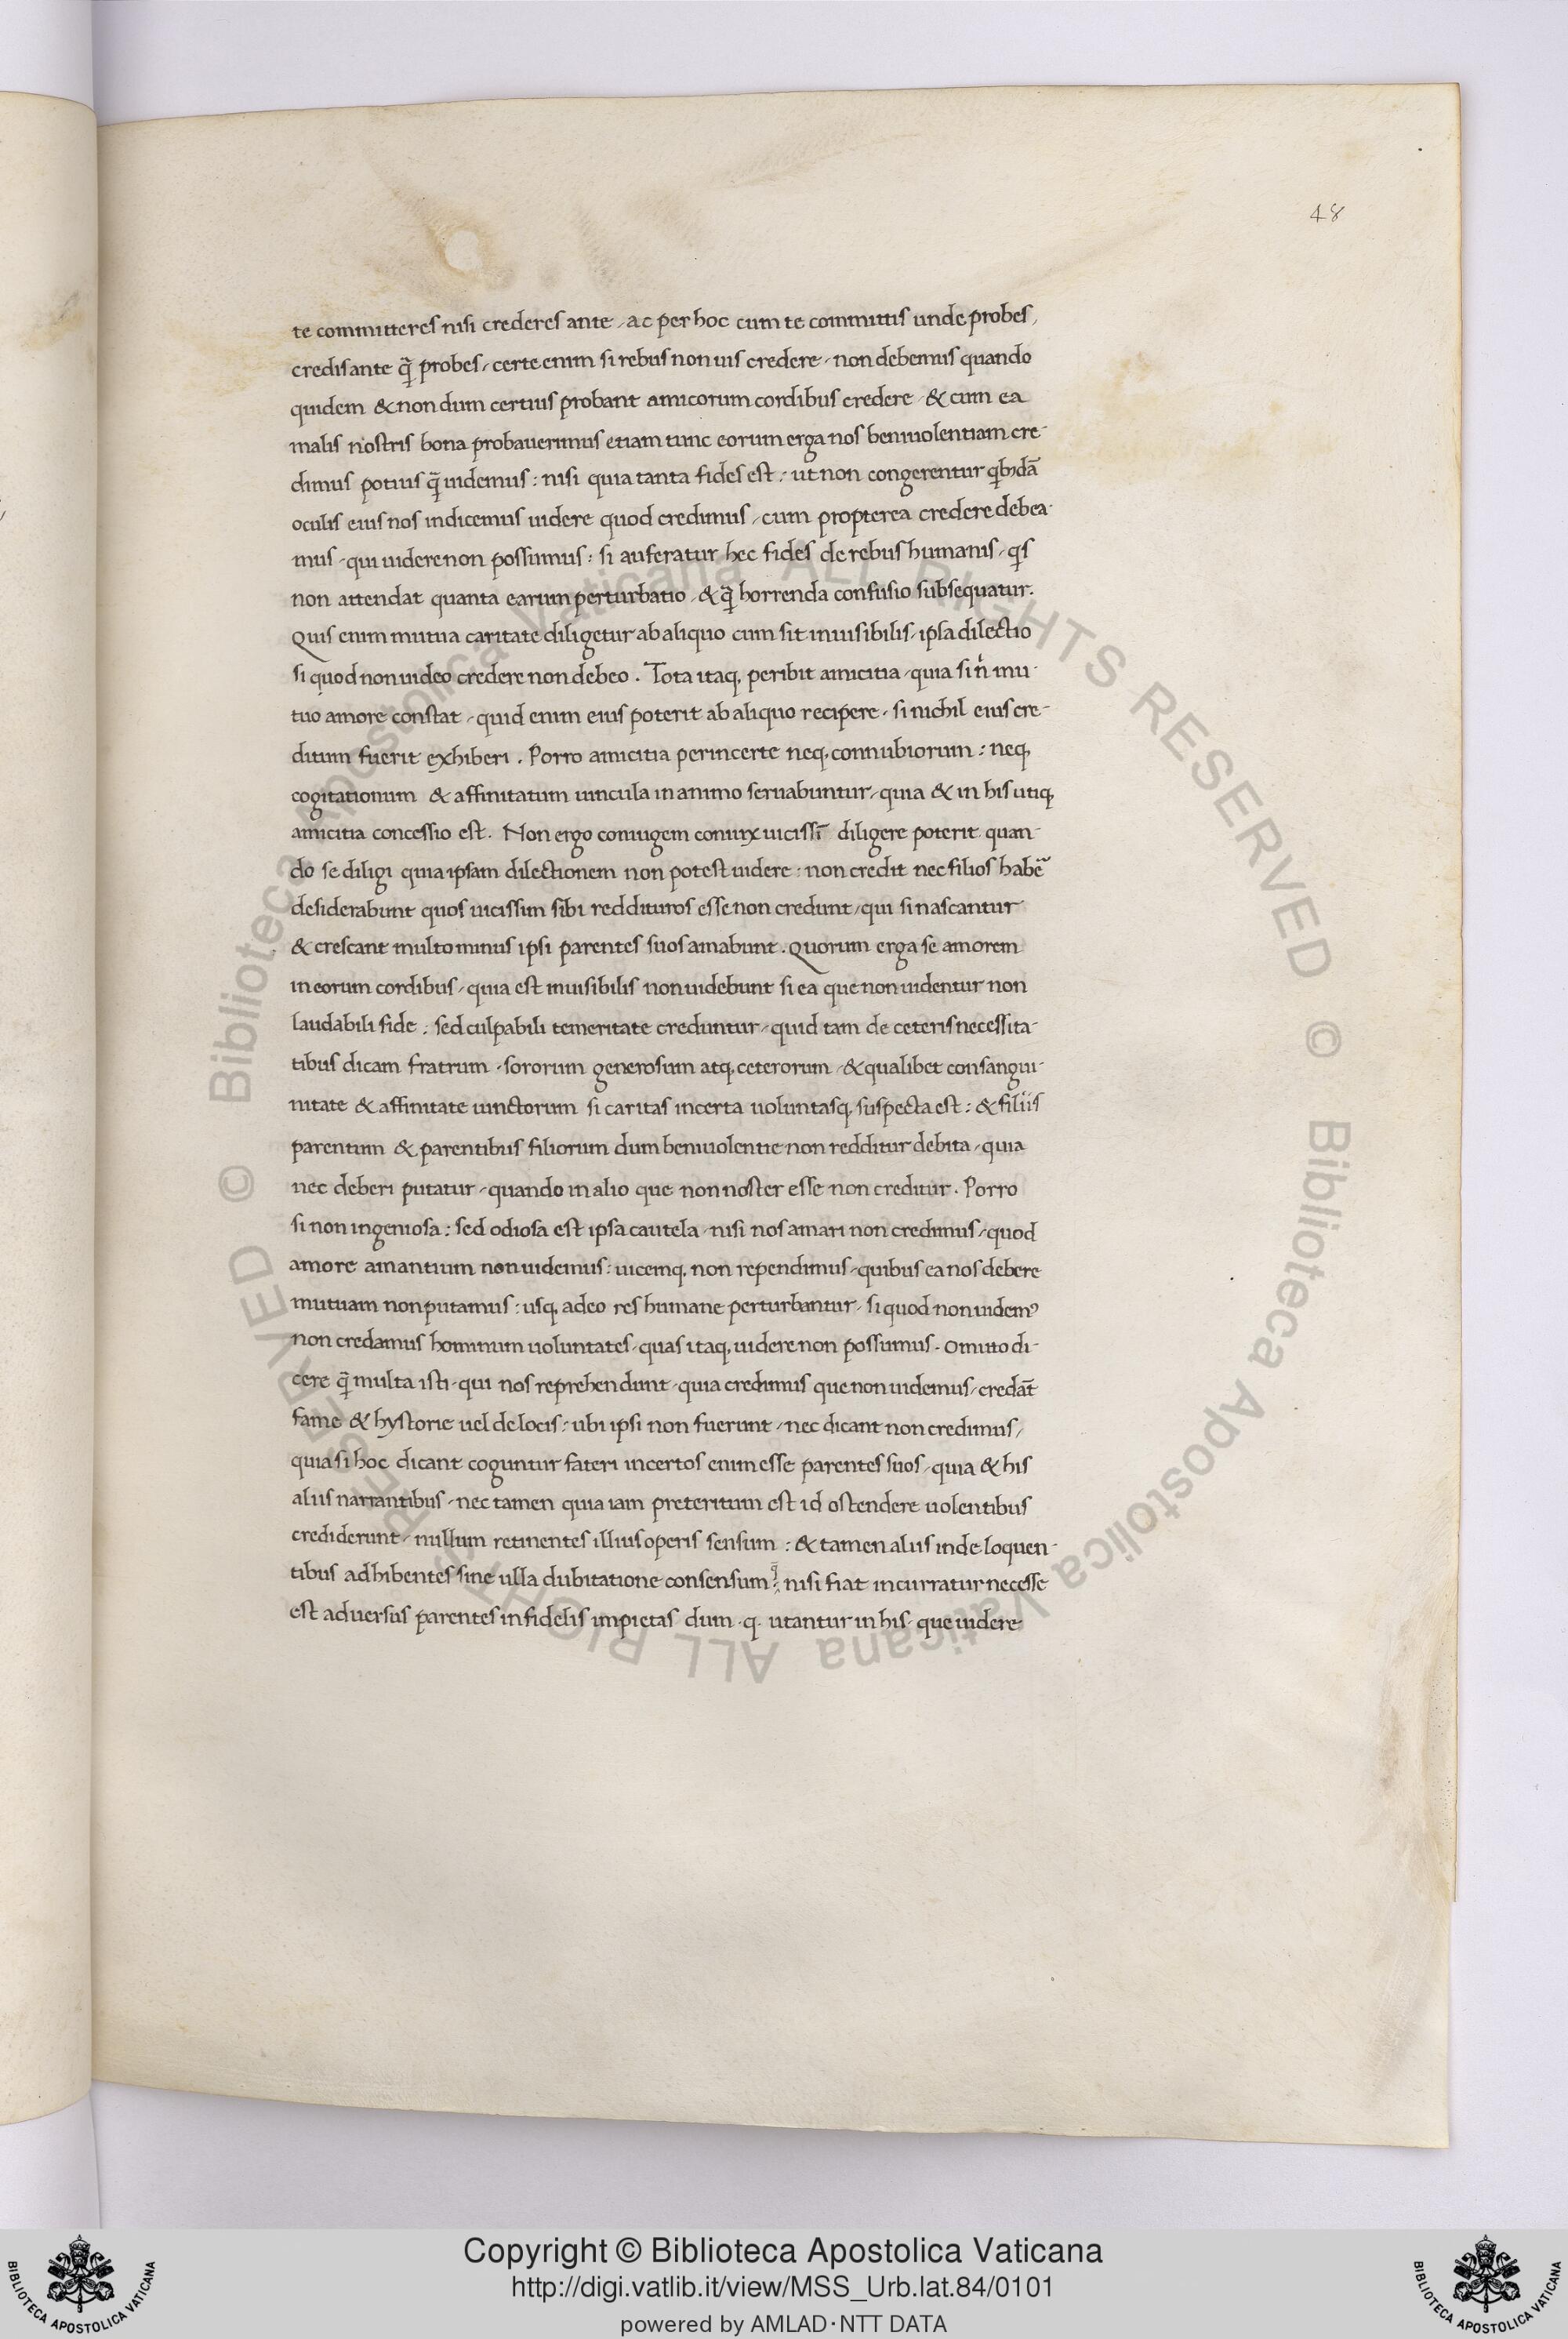 48
te committeres nisi crederes ante, ac per hoc cum te committis unde probes,
credis ante q̃ probes, certe enim si rebus non uis credere, non debemus quando
quidem & non dum certius probant amicorum cordibus credere & cum ea
malis nostris bona probauerimus etiam tunc eorum erga nos beniuolentiam cre-
dimus potius q̃ uidemus: nisi quia tanta fides est: ut non congerentur qbꝰdã
oculis eius nos indicemus uidere quod credimus, cum propterea credere debea-
mus, qui uidere non possumus: si auferatur hec fides de rebus humanis, qs
non attendat quanta earum perturbatio, & q̃ horrenda confusio subsequatur.
Quis enim mutua caritate diligetur ab aliquo cum sit inuisibilis, ipsa dilectio
si quod non uideo credere non debeo. Tota itaq, peribit amicitia, quia si n̾ mu-
tuo amore constat, quid enim eius poterit ab aliquo recipere, si nichil eius cre-
ditum fuerit exhiberi. Porro amicitia perincerte neq, connubiorum: neq,
cogitationum & affinitatum uincula in animo seruabuntur, quia & in his utiq,
amicitia concessio est. Non ergo coniugem coniux uicissĩ diligere poterit quan-
do se diligi quia ipsam dilectionem non potest uidere: non credit nec filios habẽ
desiderabunt quos uicissim sibi reddituros esse non credunt, qui si nascantur
& crescant multo minus ipsi parentes suos amabunt. Quorum erga se amorem
in eorum cordibus, quia est inuisibilis non uidebunt si ea que non uidentur non
laudabili fide: sed culpabili temeritate creduntur, quid tam de ceteris necessita-
tibus dicam fratrum, sororum generosum atq, ceterorum, & qualibet consangui-
nitate & affinitate uinctorum si caritas incerta uoluntasq, suspecta est: & filiis
parentum & parentibus filiorum dum beniuolentie non redditur debita, quia
nec deberi putatur, quando in alio que non noster esse non creditur. Porro
si non ingeniosa: sed odiosa est ipsa cautela, nisi nos amari non credimus, quod
amore amantium non uidemus: uicemq, non rependimus, quibus ea nos debere
mutuam non putamus: usq, adeo res humane perturbantur, si quod non uidemꝰ
non credamus hominum uoluntates, quas itaq, uidere non possumus. Omitto di-
cere q̃ multa isti, qui nos reprehendunt, quia credimus que non uidemus, credãt
fame & hystorie uel de locis: ubi ipsi non fuerunt, nec dicant non credimus,
quia si hoc dicant coguntur fateri incertos enim esse parentes suos, quia & his
aliis narrantibus, nec tamen quia iam preteritum est id ostendere uolentibus
crediderunt, nullum retinentes illius operis sensum: & tamen aliis inde loquen-
tibus adhibentes sine ulla dubitatione consensum: nisi fiat incurratur necesse
est aduersus parentes infidelis impietas dum .q. utantur in his, que uidere
© Biblioteca Apostolica Vaticana ALL RIGHTS RESERVED © Biblioteca Apostolica Vaticana ALL RIGHTS RESERVED
Copyright © Biblioteca Apostolica Vaticana
http://digi.vatlib.it/view/MSS_Urb.lat.84/0101
powered by AMLAD·NTT DATA
BIBLIOTECA APOSTOLICA VATICANA
BIBLIOTECA APOSTOLICA VATICANA